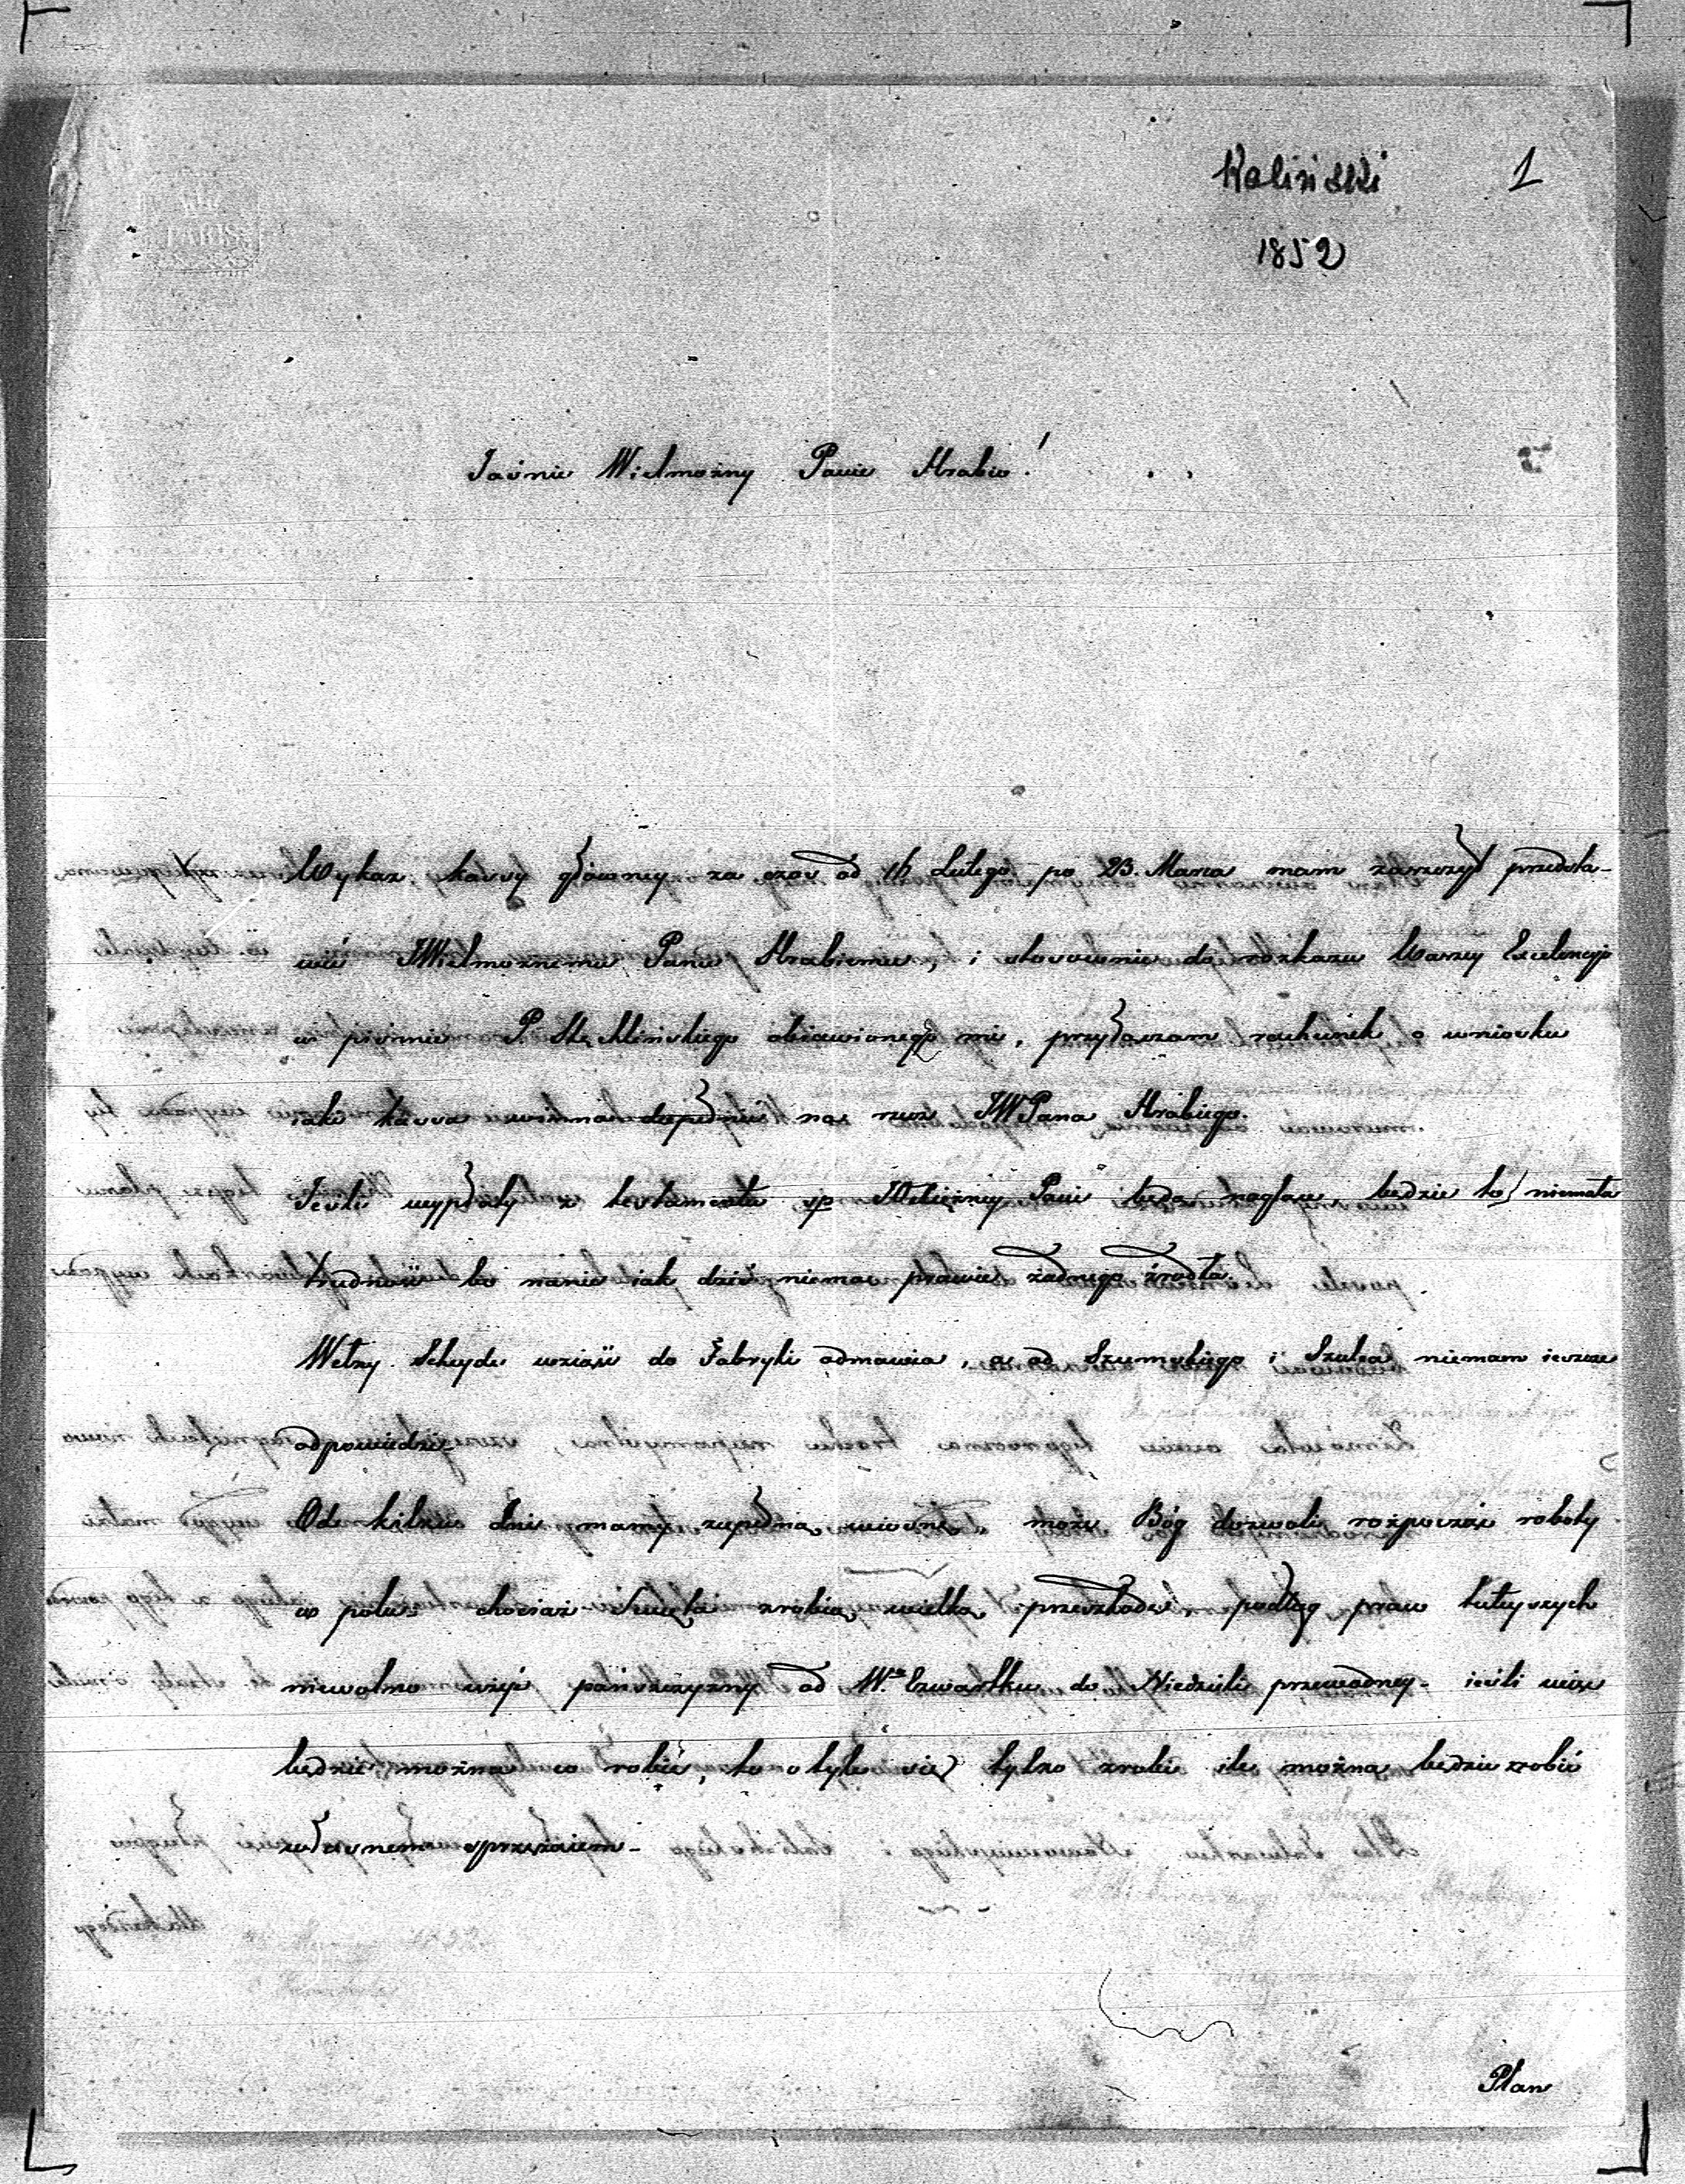 Kaliński 1
1852
PARIS
Jaśnie Wielmożny Panie Hrabio!
Wykaz kassy głowney za czas od Lutego po 23. Marca mam zaszczyt przedsta-
wić JWielmożnemu Panu Hrabiemu, i stosownie do rozkazu Waszey Excelencyi
w piśmie P. obiawionego mi, przyłaczam rachunek o wniosku
iaki kassa winna na rzecz JWPana Hrabiego.
Jeśli wypłaty z testamentu sp Pani będą nagłące, będzie to niemała
trudność bo nanie iak dziś niema prawie żadnego źrodła.
Wełny Scheyde wziąść do Fabryki odmawia, a od Szumskiego i Szulca niemam ieszcze
odpowiedzi.
Od kilku dni mamy zupełną wiosnę może Bóg dozwoli rozpocząć roboty
w polu chociaż Swięta zrobią wielką przeszkodę, podług praw tuteyszych
niewolno użyć pańszczyzny od W. Czwartku do Niedzieli przewodney - ieśli więc
będzie można co robić, to o tyle się tylko zrobi ile można będzie zrobić
własnem sprzężaiem -
Plan